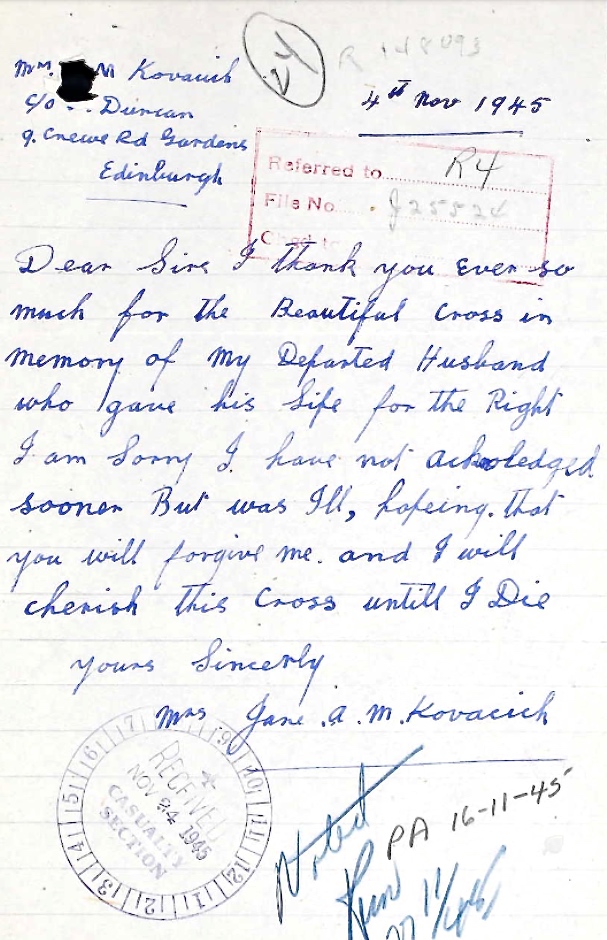 Mrs. M Kovacich
R 148093
c/o Duncan
4th Nov 1945
9. Crewe Rd Gardens
Edinburgh
Referred to R4
File No. J25524
Dear Sirs I thank you Ever so
much for the Beautiful Cross in
memory of My Departed Husband
who gave his Life for the Right
I am Sorry I have not acknoledged
sooner But was Ill, hopeing that
you will forgive me. and I will
cherish this Cross untill I Die
yours Sincerly
Mrs Jane .A. M. Kovacich
RECEIVED
NOV 24 1945
CASUALTY
SECTION
7 9 10 11 12 1 2 3 4 5 6
Noted
PA 16-11-45